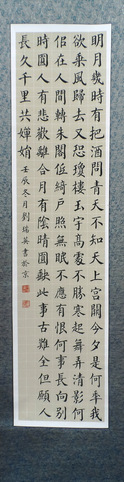 明月幾時有把酒問青天不知天上宮闕今夕是何年我
欲乘風歸去又恐瓊樓玉宇高處不勝寒起舞弄清影何
似在人間轉朱閣低綺戶照無眠不應有恨何事長向別
時圓人有悲歡離合月有陰晴圓缺此事古難全但願人
長久千里共嬋娟 壬辰冬月劉瑞英書於京